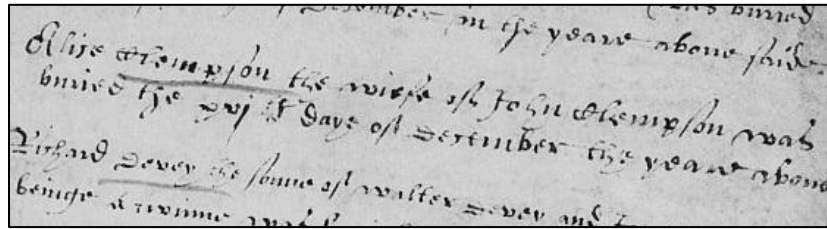 December in the yeare above said
was buried
Alise Clempson the wiefe of John Clempson was
buried the xvjth daye of December the yeare above
Richard Devey the sonne of Walter Devey and
beinge a twinne was